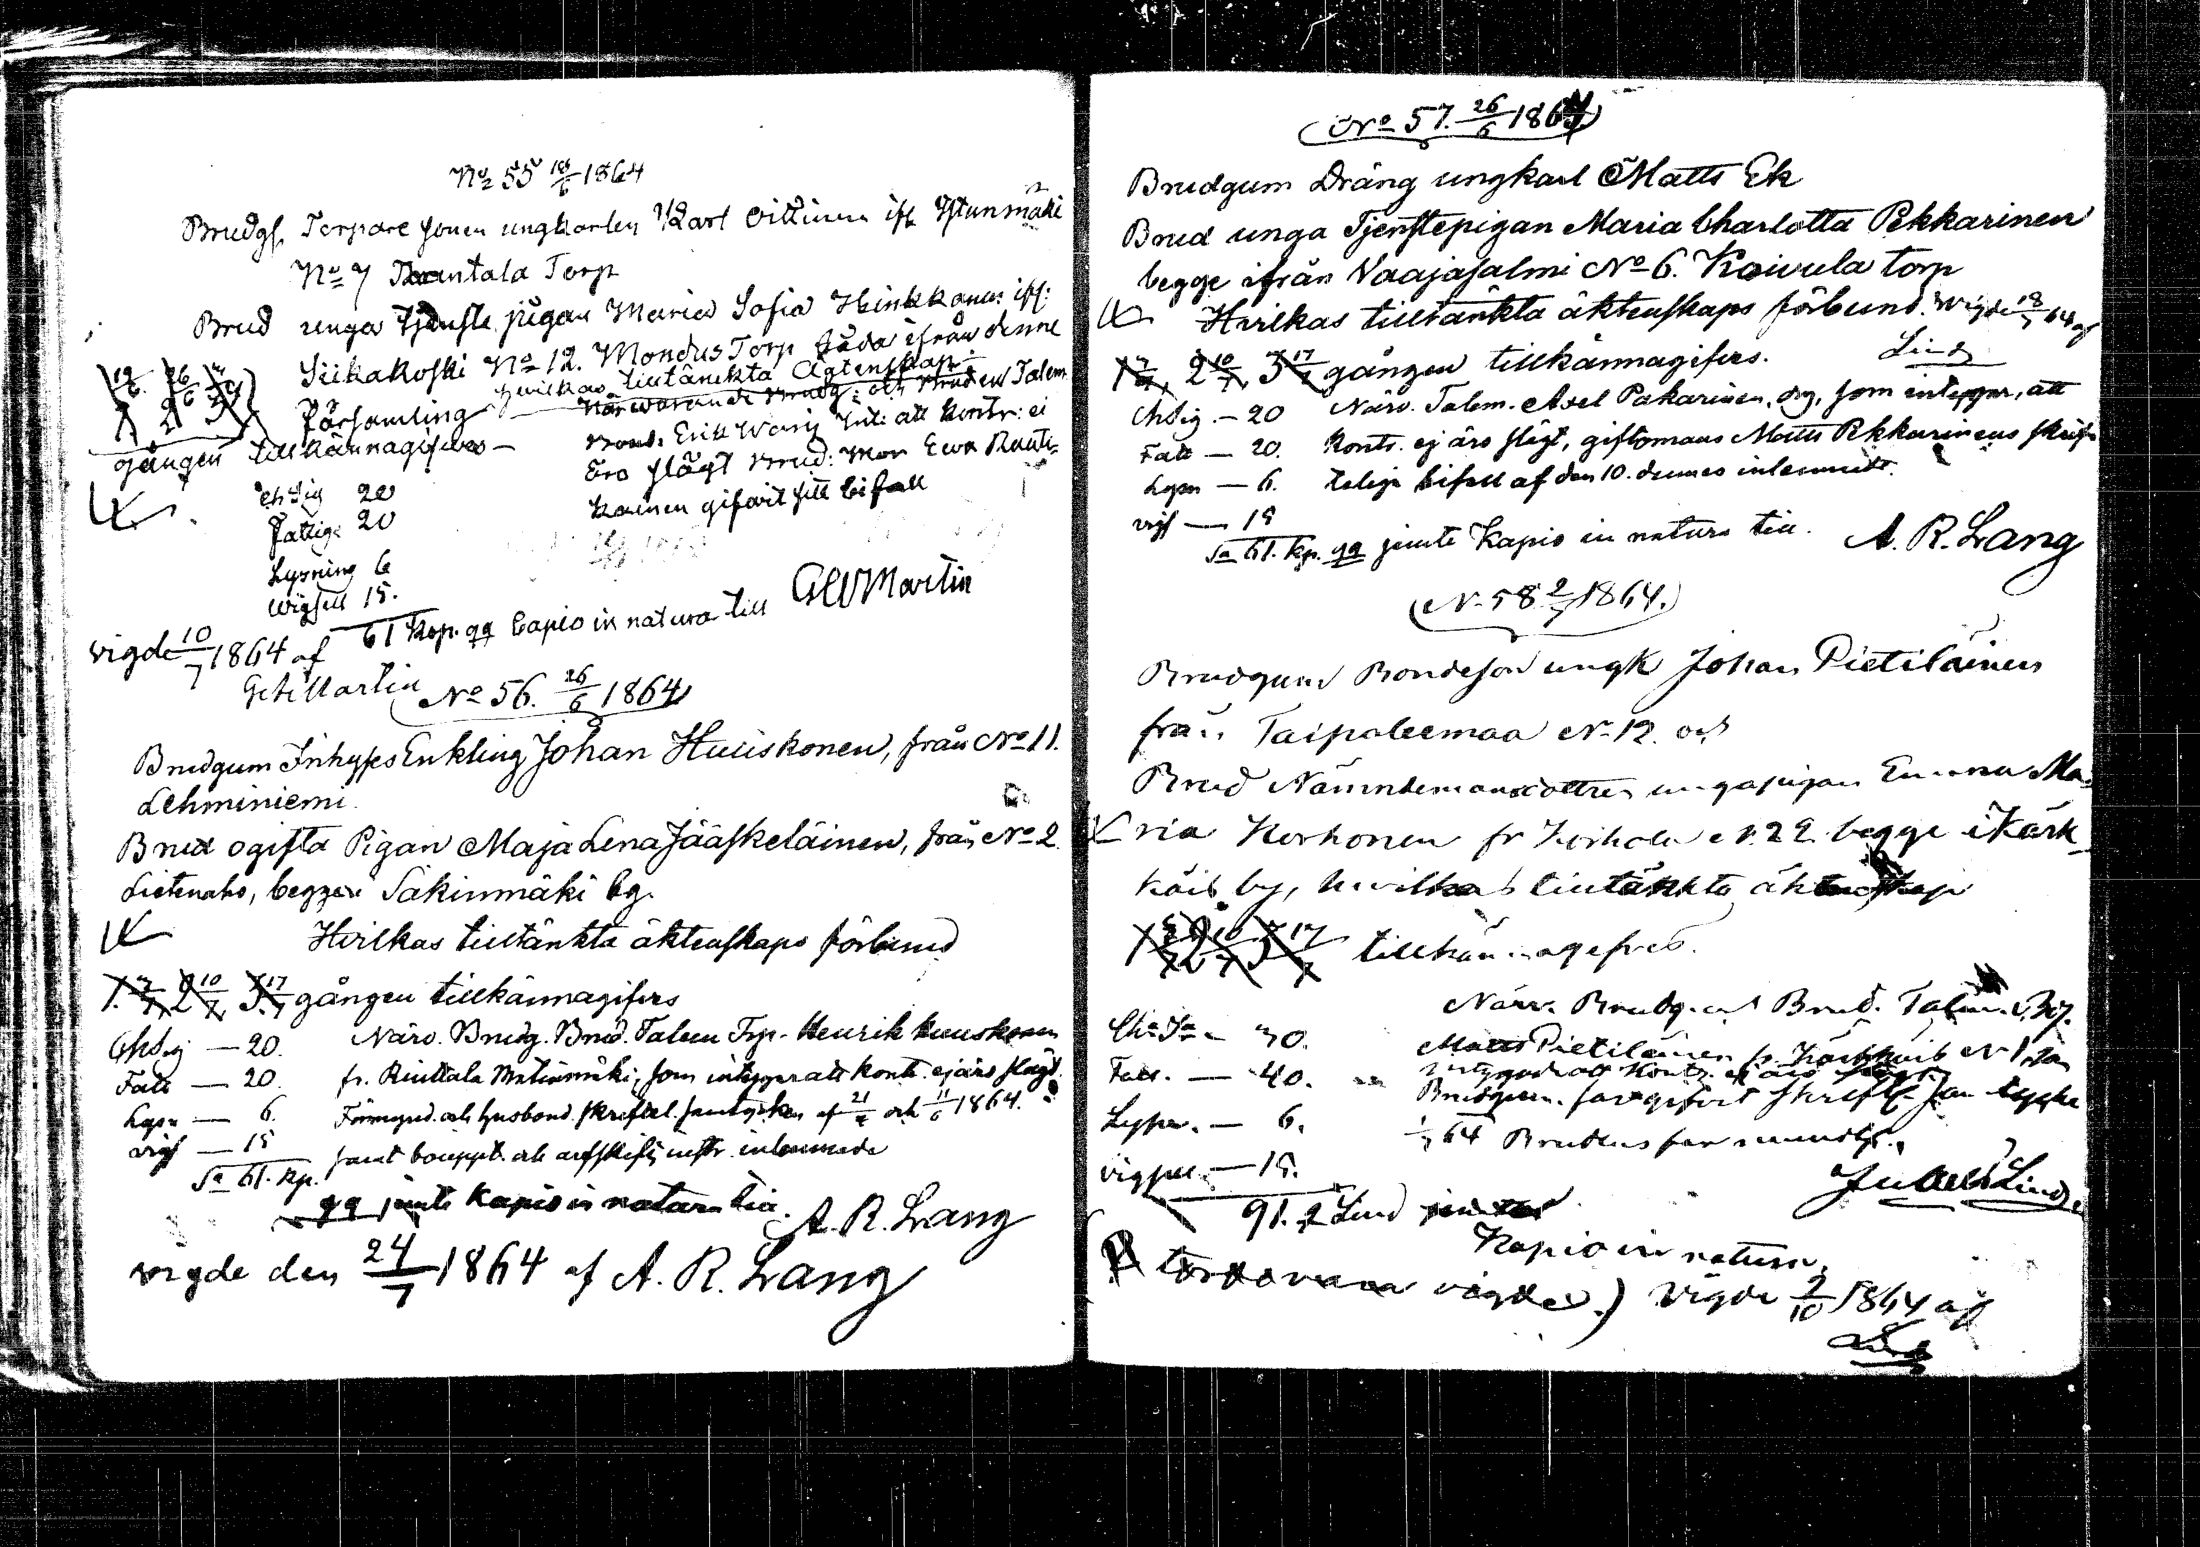 No 55 18/6 1864
Brudg. Torpare sonen ungkarlen Karl Oittinen ifr. Istunmäki
No 7 Rantala Torp
Brud unga tjenste pigan Maria Sofia Heinkkonen ifr:
Siikakoski No 12. Mondus Torp båda ifrån denne
Församling hvilkas tilltänkta Ägtenskap
19/6 26/6 3/7
1. 2 3
gången tillkännagifves —
Närwarande Brudg: och Bruden Talem.
Bond. Erik Warij Int: att Kontr: ej
Ero slägt Brud: Mor Ewa Rauti-
kainen gifwit sitt bifall
Ch Sig 20
Fattig. 20
Lysning 6
Wigsell 15.
61 kop. qq Capio in natura till GWMartin
vigde 10/7 1864 af
G W Martin
No 56. 26/6 1864
Brudgum Inhyses Enkling Johan Huuskonen, från No 11.
Lehminiemi.
Brud ogifta Pigan Maja Lena Jääskeläinen, från No 2.
Lietenaho, begge i Säkinmäki by.
Hvilkas tilltänkta äktenskaps förbund
1. 3/7 2 10/7 3. 17/7 gången tillkännagifvs
Ch Sig — 20.
Fatt — 20.
Lysn — 6.
vigs — 15
Sa 61. kp.
Närv. Brudg. Brud. Talem Trp. Henrik Kuuskonen
fr. Riuttala Matinmäki, som intygar att kontr. ej äro slägt.
Förmynd. och husbond. skriftel. samtycken af och 11/6 1864.
samt bouppt. och arfskifts instr. inlemnade
qq jemte Kapio in natura till. A. R. Lang
vigde den 24/7 1864 af A. R. Lang
No 57. 26/6 1864
Brudgum Dräng ungkarl Matts Ek
Brud unga Tjenstepigan Maria Charlotta Pekkarinen
begge ifrån Vaajasalmi No 6. Koivula torp
Hvilkas tilltänkta äktenskaps förbund. Wigde 18/7 64 af
Lind
1 3/7, 2 10/7, 3 17/7 gången tillkännagifvs.
Ch Sig. — 20
Fatt — 20.
Lysn — 6.
vigs — 15
Närv. Talem. Axel Pakarinen, drg, som intygar, att
Kontr. ej äro slägt, giftomans Matts Pekkarinens skrift-
teliga bifall af den 10. dennes inlemnadt.
Sa 61. kp. qq jemte Kapio in natura till. A. R. Lang
N. 58 2/7 1864.
Brudgum Bondeson ungk Johan Pietiläinen
från Taipaleemaa No 12. och
Brud Nämndemansdottren unga pigan Emma Ma-
ria Korhonen fr Korhola No 22. begge i Kärk-
käis by, hvilkas tilltänkta äktenskap
1 3/7 2 10/7 3 17/7 tillkännagifvs.
Ch. Sa — 30.
Fatt. — 40.
Lysn. — 6.
vigsel. — 15.
Närv. Brudg. och Brud. Talem.
Matts Pietiläinen fr. Kärkkäis No 1, som
intygade att Kontr. ej äro slägt.
Brudgum. far gifvit skriftl. samtycke
64 Brudens far muntlig.
Lind
91. Lind jemte
Kapio in natura.
vigde.) Vigde 2/10 1864 af
Lind